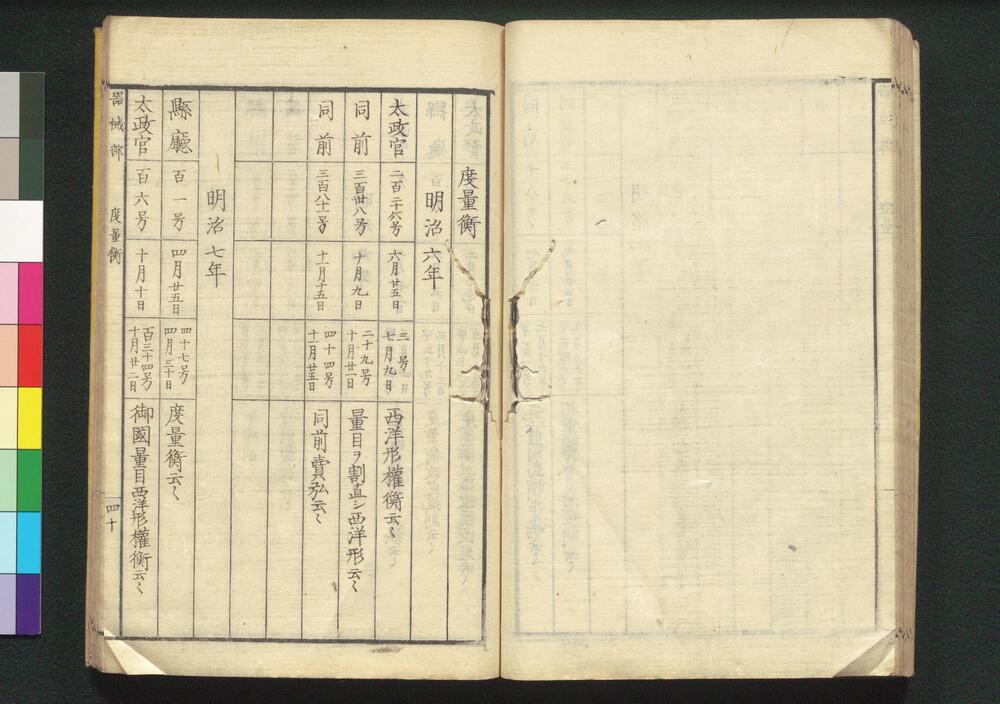 度量衡
明治六年
太政官 二百二十六号 六月廿五日 三号 七月九日 西洋形權衡云〻
同前 三百卅八号 十月九日 二十九号 十月廿一日 量目ヲ割直シ西洋形云〻
同前 三百八十一号 十一月十五日 四十四号 十一月廿五日 同前賣弘云〻
明治七年
縣廳 百一号 四月廿五日 四十七号 四月三十日 度量衡云〻
太政官 百六号 十月十日 百三十四号 十月廿二日 御國量目西洋形權衡云〻
器械部 度量衡 四十